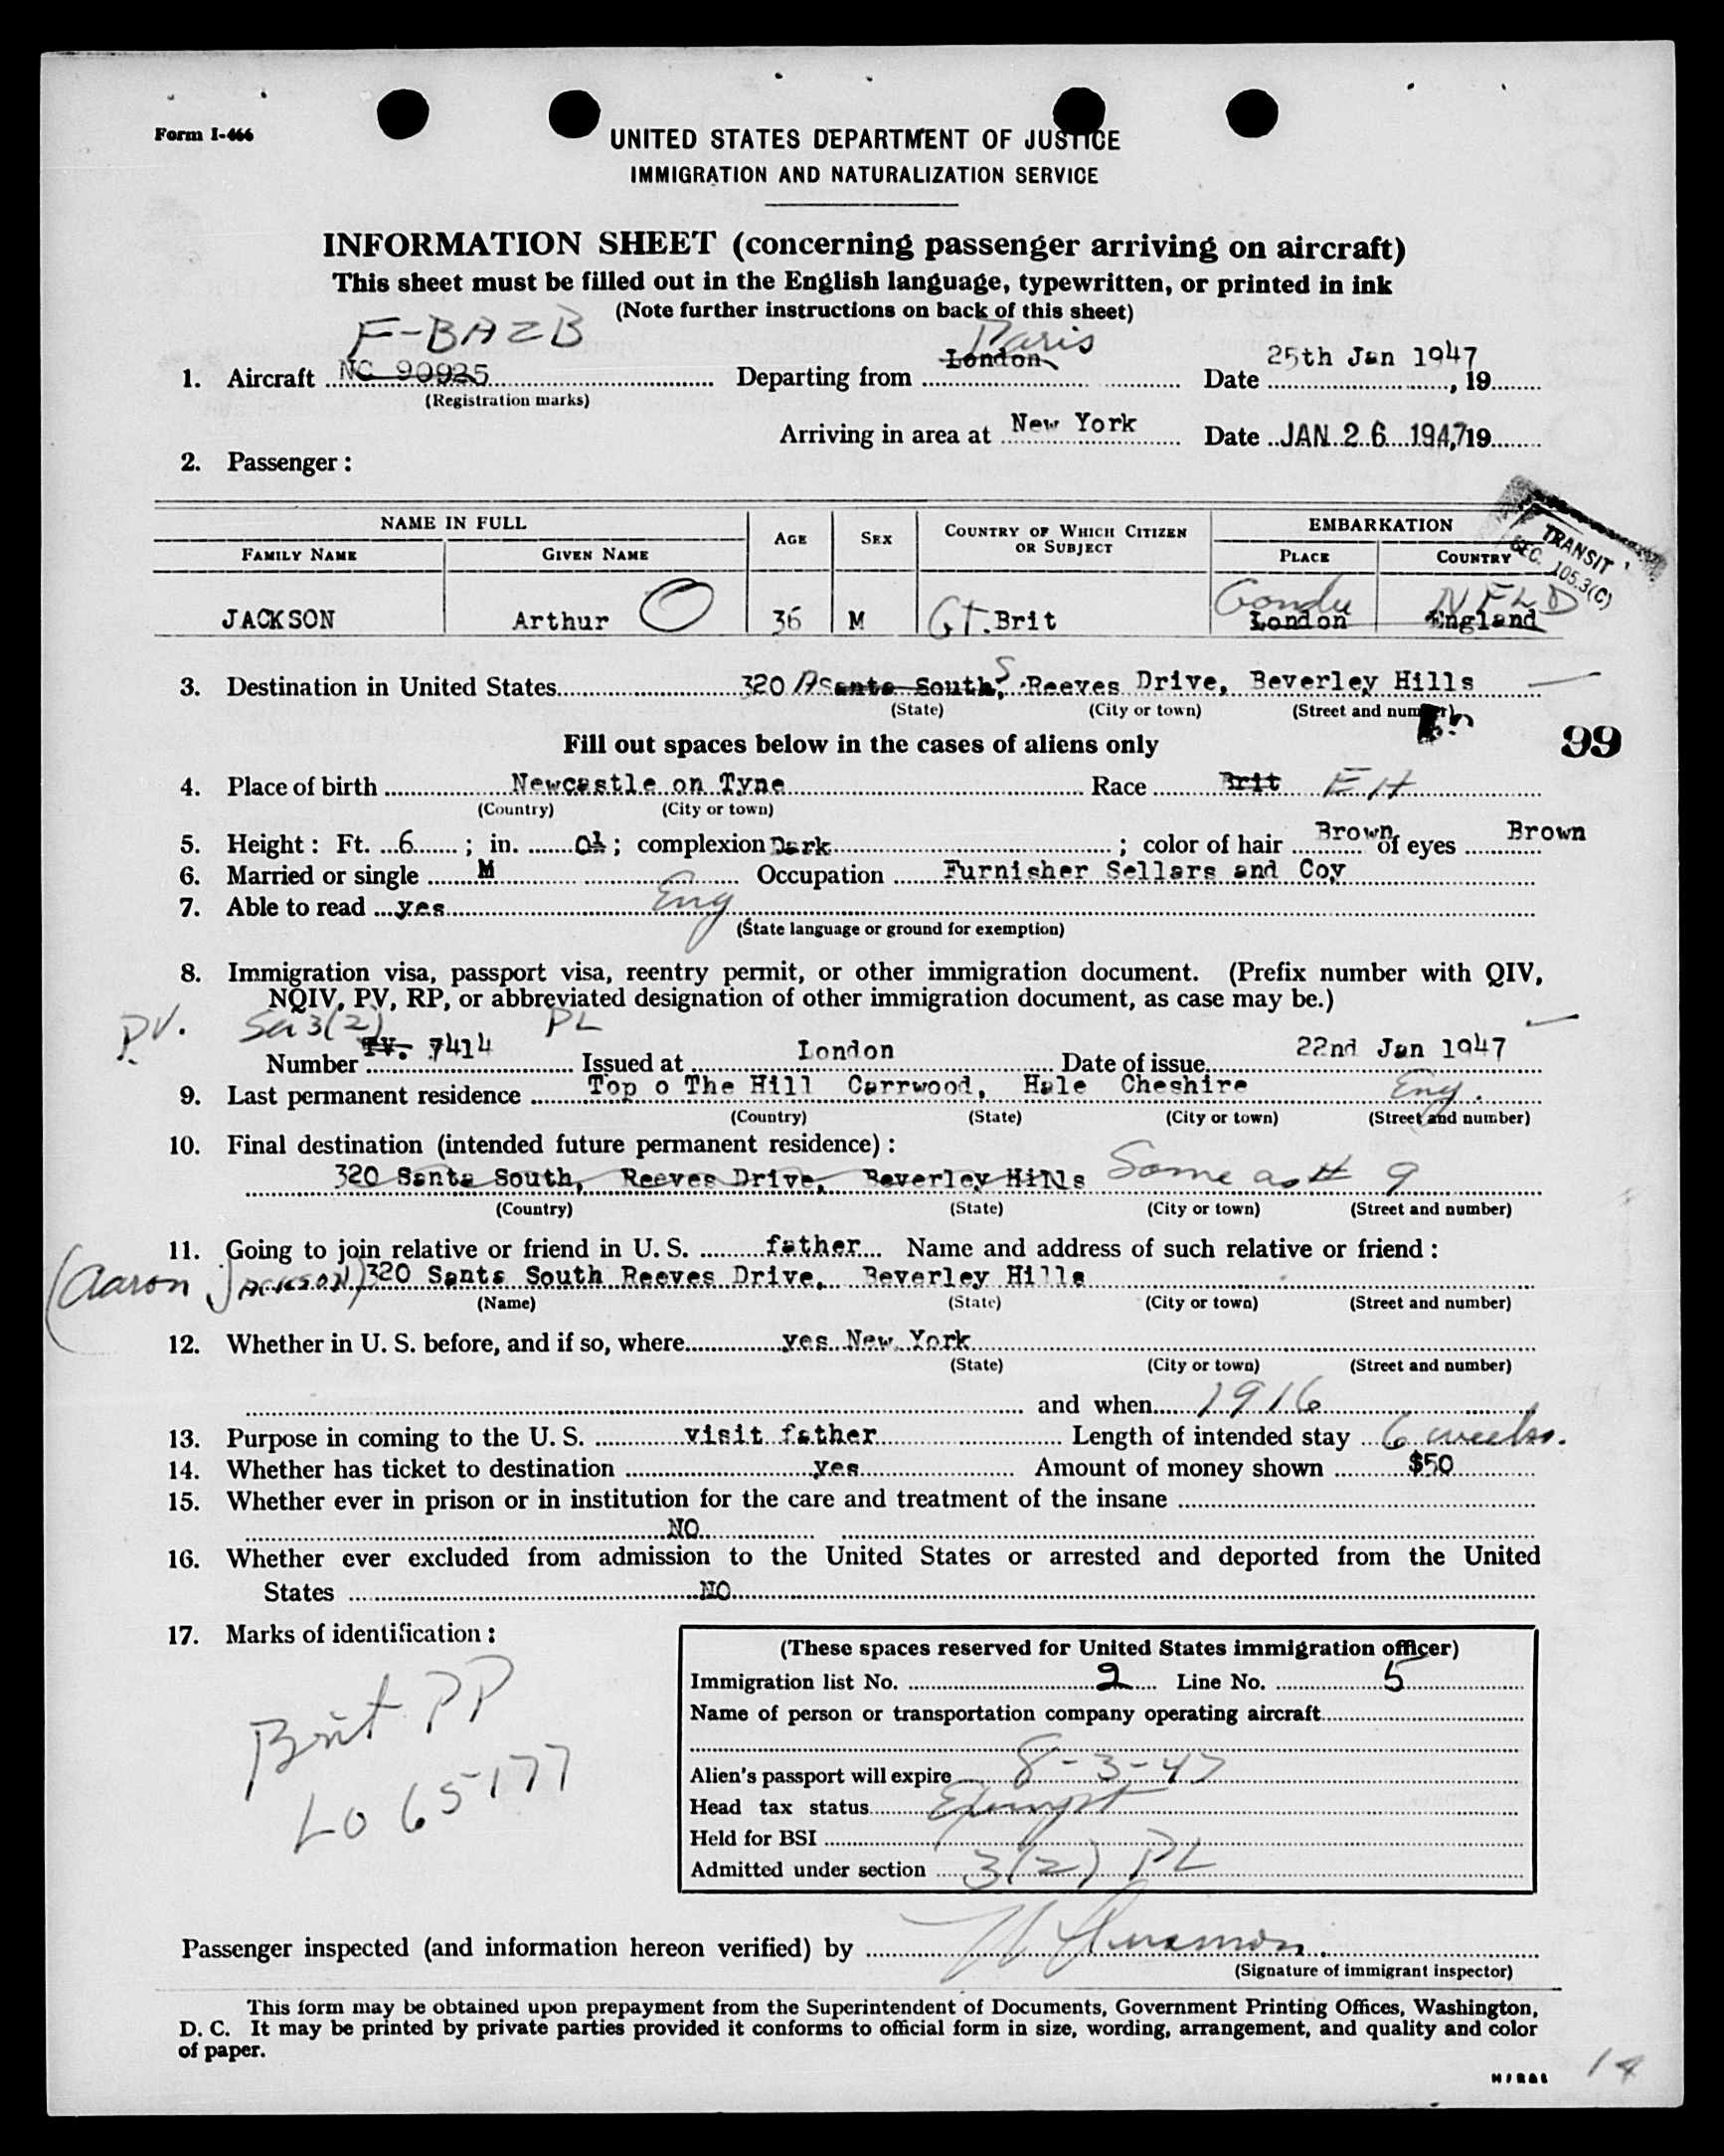 Form I-466
UNITED STATES DEPARTMENT OF JUSTICE
IMMIGRATION AND NATURALIZATION SERVICE
INFORMATION SHEET (concerning passenger arriving on aircraft)
This sheet must be filled out in the English language, typewritten, or printed in ink
(Note further instructions on back of this sheet)
F-BAZB Paris
1. Aircraft NC 90925 Departing from London Date 25th Jan 1947, 19
(Registration marks)
Arriving in area at New York Date JAN 26 1947 19
2. Passenger:
NAME IN FULL AGE SEX COUNTRY OF WHICH CITIZEN OR SUBJECT EMBARKATION
FAMILY NAME GIVEN NAME PLACE COUNTRY
TRANSIT
SEC. 105.3(C)
Gander NFLD
JACKSON Arthur O 36 M Gt. Brit London England
3. Destination in United States 320 Santa South, S Reeves Drive, Beverley Hills
(State) (City or town) (Street and number)
99
Fill out spaces below in the cases of aliens only
4. Place of birth Newcastle on Tyne Race Brit EH
(Country) (City or town)
5. Height: Ft. 6; in. 0½; complexion Dark; color of hair Brown of eyes Brown
6. Married or single M Occupation Furnisher Sellars and Coy
7. Able to read yes Eng
(State language or ground for exemption)
8. Immigration visa, passport visa, reentry permit, or other immigration document. (Prefix number with QIV,
NQIV, PV, RP, or abbreviated designation of other immigration document, as case may be.)
PV. Sec 3(2) PL
Number TV. 7414 Issued at London Date of issue 22nd Jan 1947
9. Last permanent residence Top o The Hill Carrwood, Hale Cheshire Eng.
(Country) (State) (City or town) (Street and number)
10. Final destination (intended future permanent residence):
320 Santa South, Reeves Drive, Beverley Hills Same as # 9
(Country) (State) (City or town) (Street and number)
11. Going to join relative or friend in U. S. father Name and address of such relative or friend:
(Aaron JACKSON) 320 Santa South Reeves Drive, Beverley Hills
(Name) (State) (City or town) (Street and number)
12. Whether in U. S. before, and if so, where yes New York
(State) (City or town) (Street and number)
and when 1916
13. Purpose in coming to the U. S. visit father Length of intended stay 6 weeks.
14. Whether has ticket to destination yes Amount of money shown $50
15. Whether ever in prison or in institution for the care and treatment of the insane
NO
16. Whether ever excluded from admission to the United States or arrested and deported from the United
States NO
17. Marks of identification:
Brit PP
LO 65177
(These spaces reserved for United States immigration officer)
Immigration list No. 2 Line No. 5
Name of person or transportation company operating aircraft
Alien's passport will expire 8-3-47
Head tax status Exempt
Held for BSI
Admitted under section 3(2) PL
Passenger inspected (and information hereon verified) by
(Signature of immigrant inspector)
This form may be obtained upon prepayment from the Superintendent of Documents, Government Printing Offices, Washington,
D. C. It may be printed by private parties provided it conforms to official form in size, wording, arrangement, and quality and color
of paper.
14